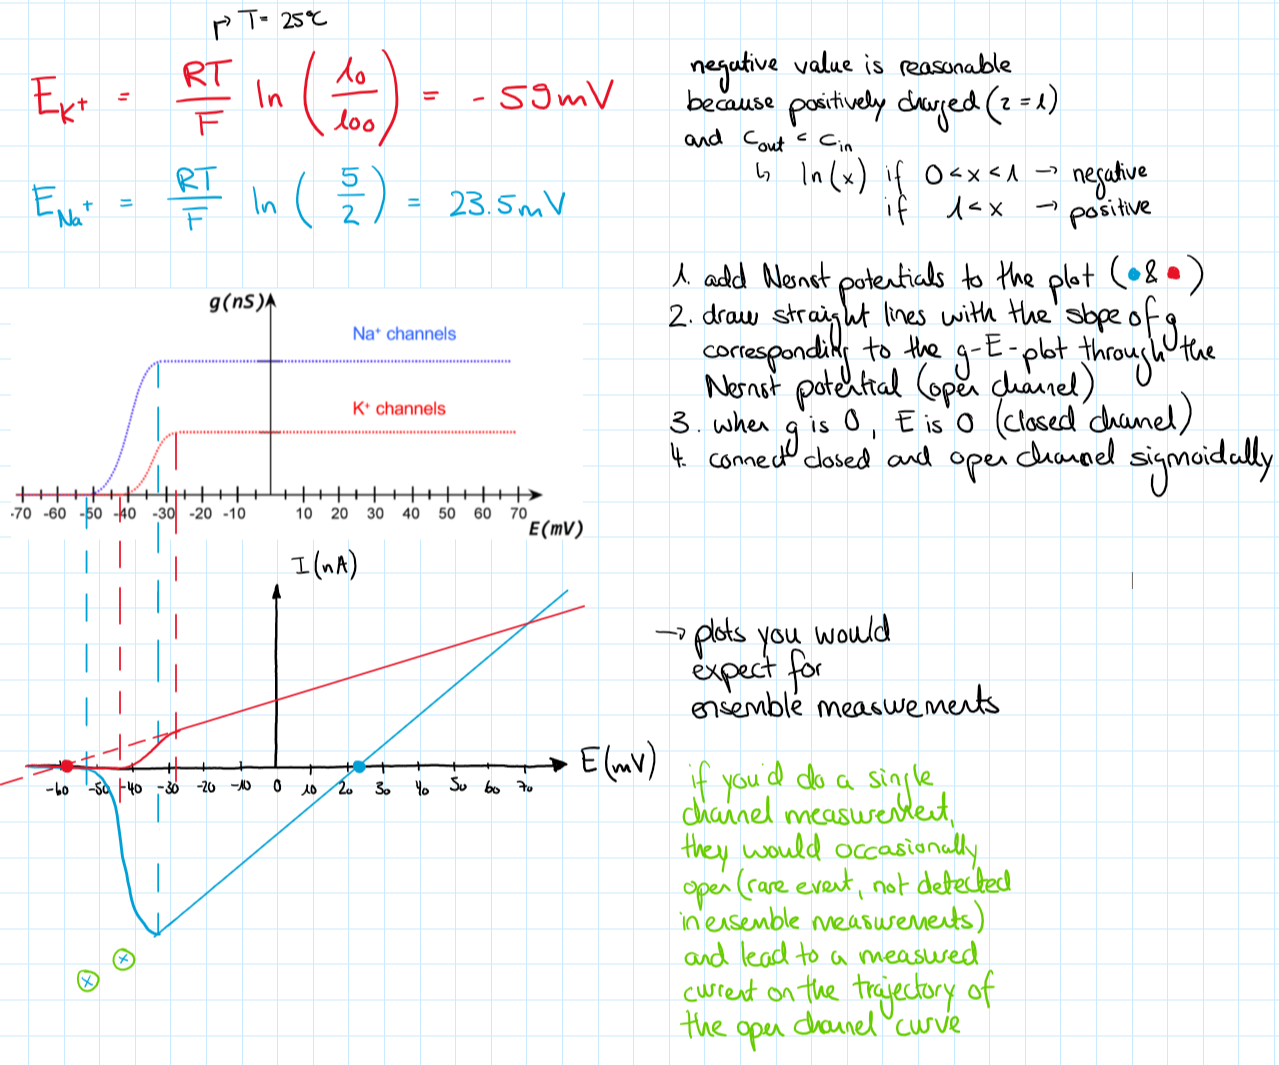 T = 25°C
E_K+ = RT/F ln(10/100) = -59mV
E_Na+ = RT/F ln(5/2) = 23.5mV
negative value is reasonable
because positively charged (z=1)
and c_out < c_in
↳ ln(x) if 0<x<1 → negative
if 1<x → positive
1. add Nernst potentials to the plot (● & ●)
2. draw straight lines with the slope of g
corresponding to the g-E-plot through the
Nernst potential (open channel)
3. when g is 0, E is 0 (closed channel)
4. connect closed and open channel sigmoidally
g(nS)
Na⁺ channels
K⁺ channels
-70 -60 -50 -40 -30 -20 -10 10 20 30 40 50 60 70
E(mV)
I(nA)
E(mV)
-60 -50 -40 -30 -20 -10 0 10 20 30 40 50 60 70
→ plots you would
expect for
ensemble measurements
if you'd do a single
channel measurement,
they would occasionally
open (rare event, not detected
in ensemble measurements)
and lead to a measured
current on the trajectory of
the open channel curve
x
x